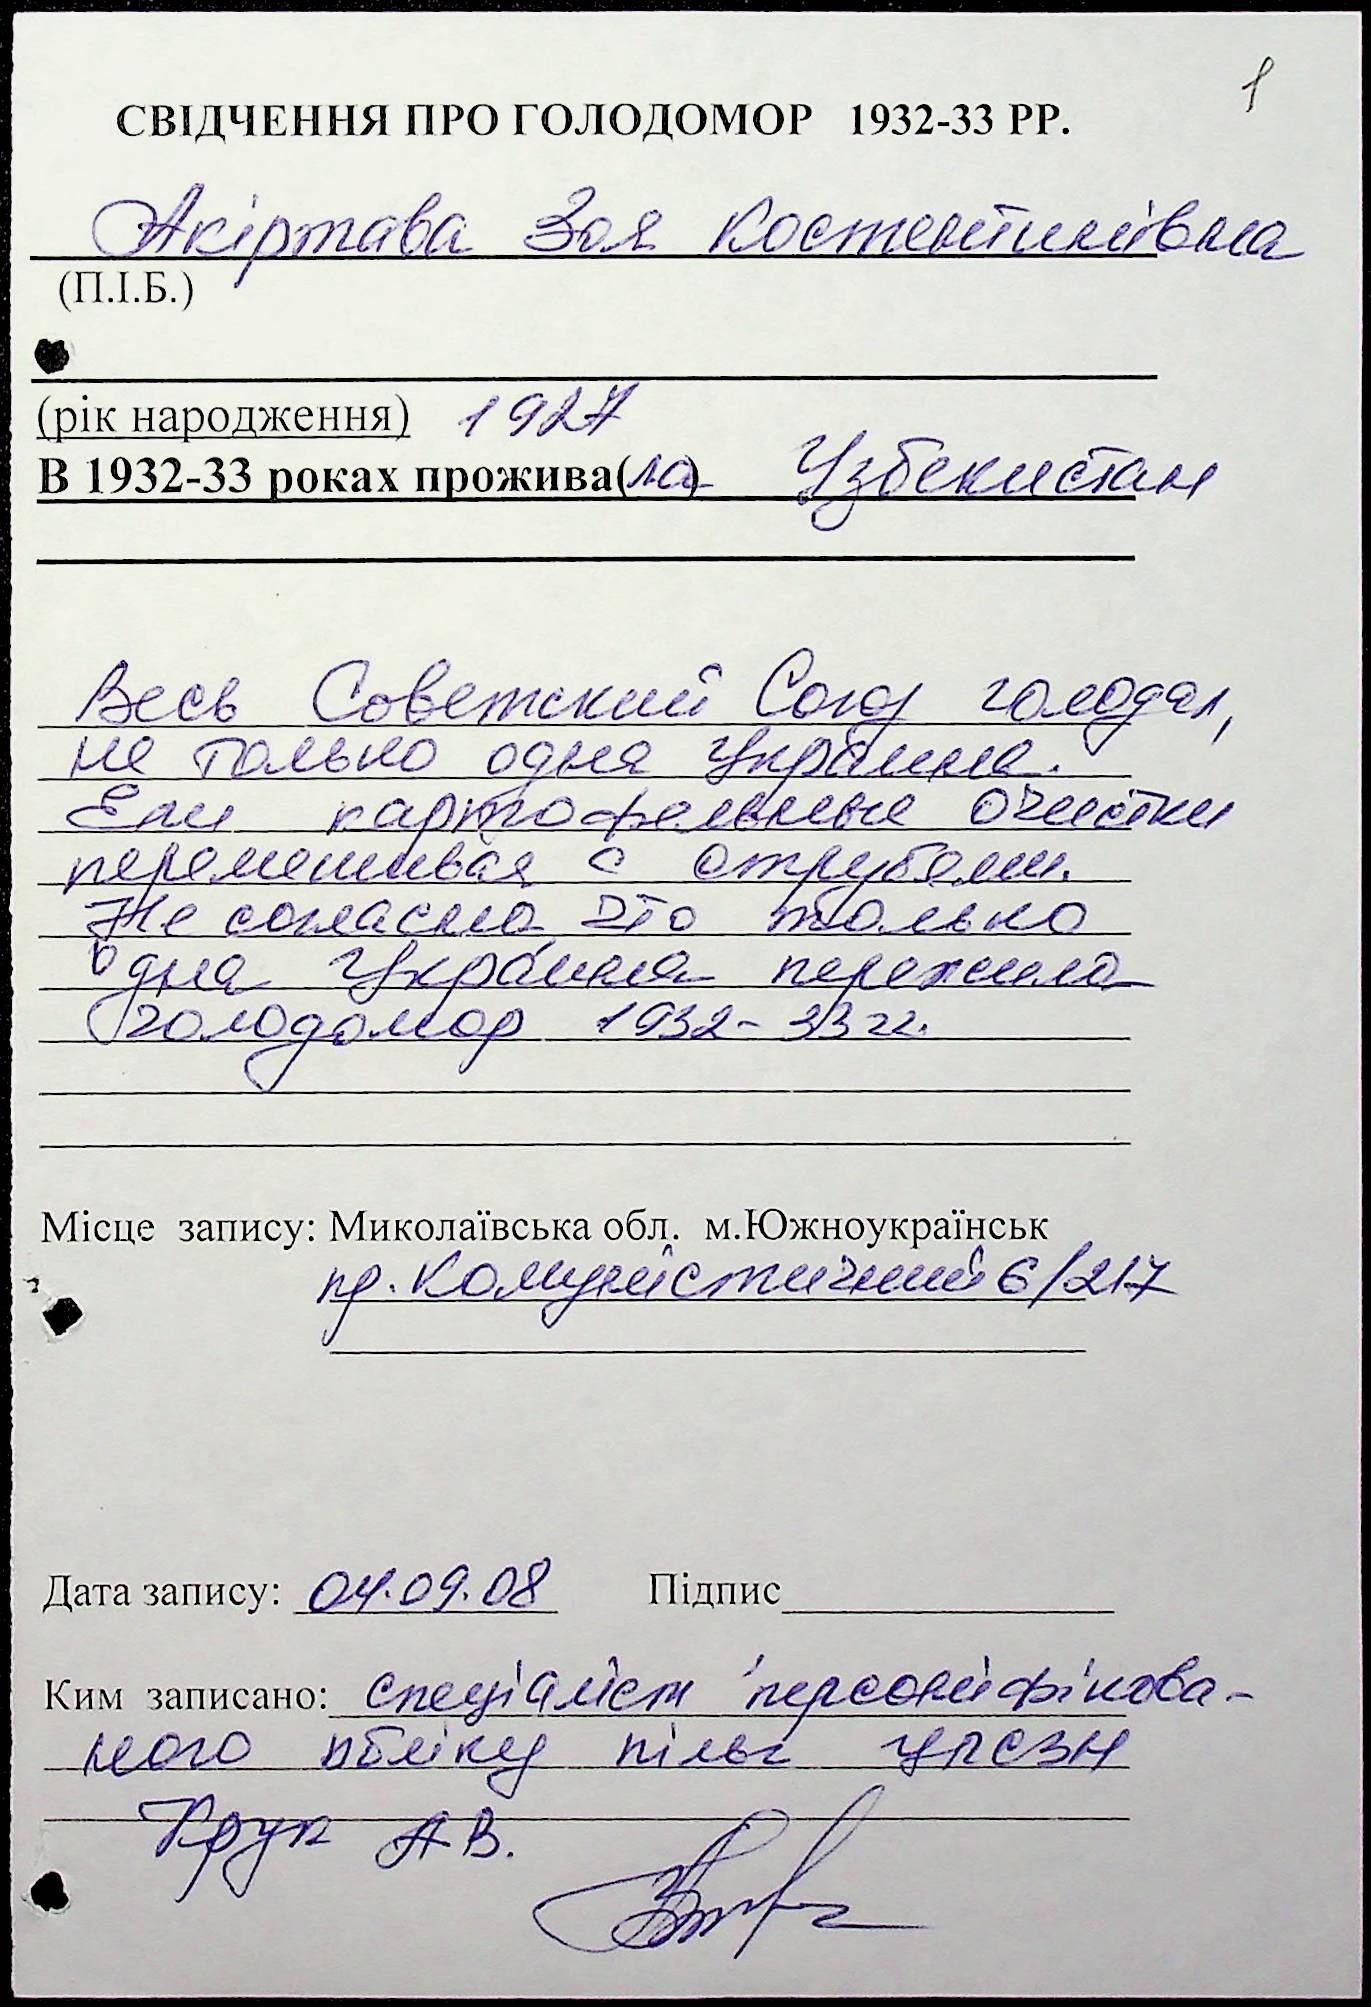 1
СВІДЧЕННЯ ПРО ГОЛОДОМОР 1932-33 РР.
Акіртава Зоя Костентинівна
(П.І.Б.)
(рік народження) 1927
В 1932-33 роках прожива(ла) Узбекистан
Весь Советский Союз голодал,
не только одна Украина.
Ели картофельные очистки
перемешивая с отрубями.
Не согласна, что только
одна Украина пережила
голодомор 1932-33 гг.
Місце запису: Миколаївська обл. м.Южноукраїнськ
пр. Комуністичний 6/217
Дата запису: 04.09.08 Підпис
Ким записано: спеціаліст персоніфікова-
ного обліку пільг УПСЗН
Крук А В.